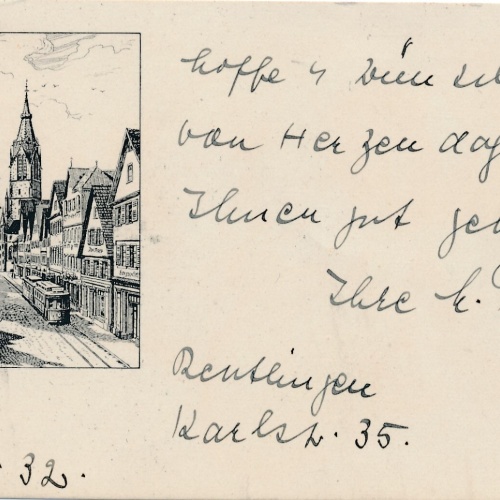 hoffe u wünsch
von Herzen daß
Ihnen gut ge
Ihre h.
Reutlingen
Karlstr. 35.
32.